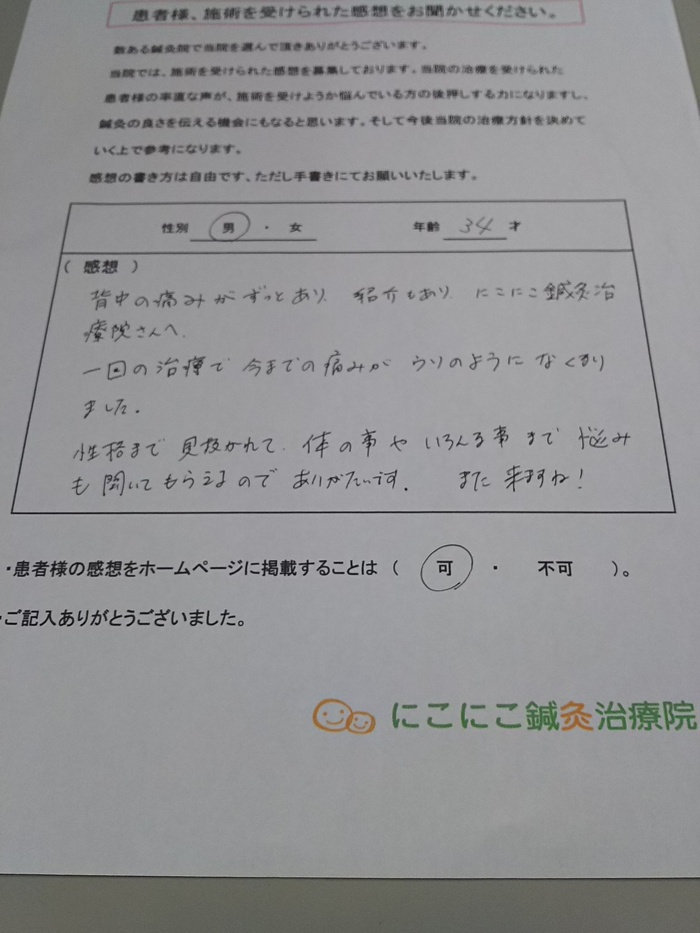 患者様、施術を受けられた感想をお聞かせください。
数ある鍼灸院で当院を選んで頂きありがとうございます。
当院では、施術を受けられた感想を募集しております。当院の治療を受けられた
患者様の率直な声が、施術を受けようか悩んでいる方の後押しする力になりますし、
鍼灸の良さを伝える機会にもなると思います。そして今後当院の治療方針を決めて
いく上で参考になります。
感想の書き方は自由です、ただし手書きにてお願いいたします。
性別 男 ・ 女 年齢 34 才
( 感想 )
背中の痛みがずっとあり、紹介もあり、にこにこ鍼灸治
療院さんへ。
一回の治療で今までの痛みがウソのようになくなり
ました。
性格まで見抜かれて、体の事やいろんな事まで悩み
も聞いてもらえるのでありがたいです。 また来ますね!
・患者様の感想をホームページに掲載することは ( 可 ・ 不可 )。
・ご記入ありがとうございました。
にこにこ鍼灸治療院